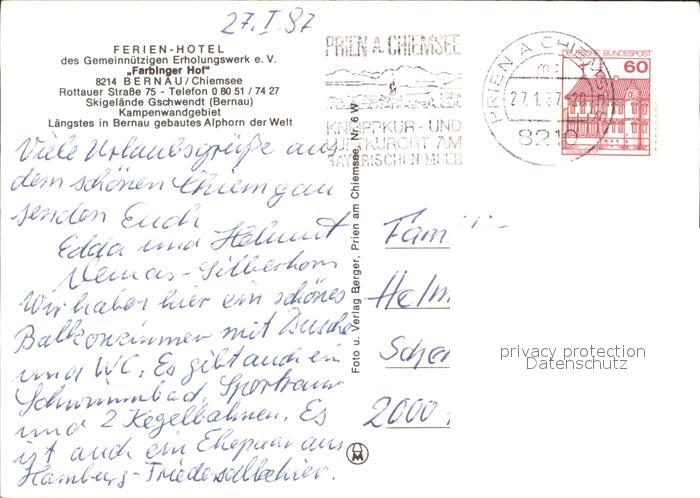 27.I.87
FERIEN-HOTEL
des Gemeinnützigen Erholungswerk e. V.
„Farbinger Hof"
8214 BERNAU/Chiemsee
Rottauer Straße 75 - Telefon 0 80 51 / 74 27
Skigelände Gschwendt (Bernau)
Kampenwandgebiet
Längstes in Bernau gebautes Alphorn der Welt
PRIEN A. CHIEMSEE
KNEIPPKUR- UND
LUFTKURORT AM
BAYERISCHEN MEER
PRIEN A CHIEMSEE
27.1.87-20
8210
DEUTSCHE BUNDESPOST
60
Viele Urlaubsgrüße aus
dem schönen Chiemgau
senden Euch
Edda und Helmut
Wir haben hier ein schönes
Balkonzimmer mit Dusche
und WC. Es gibt auch ein
Schwimmbad, Sportraum
und 2 Kegelbahnen. Es
ist auch ein Ehepaar aus
Hamburg-
Foto u. Verlag Berger, Prien am Chiemsee, Nr. 6 W
Fam
Helm
Sche
2000
privacy protection
Datenschutz